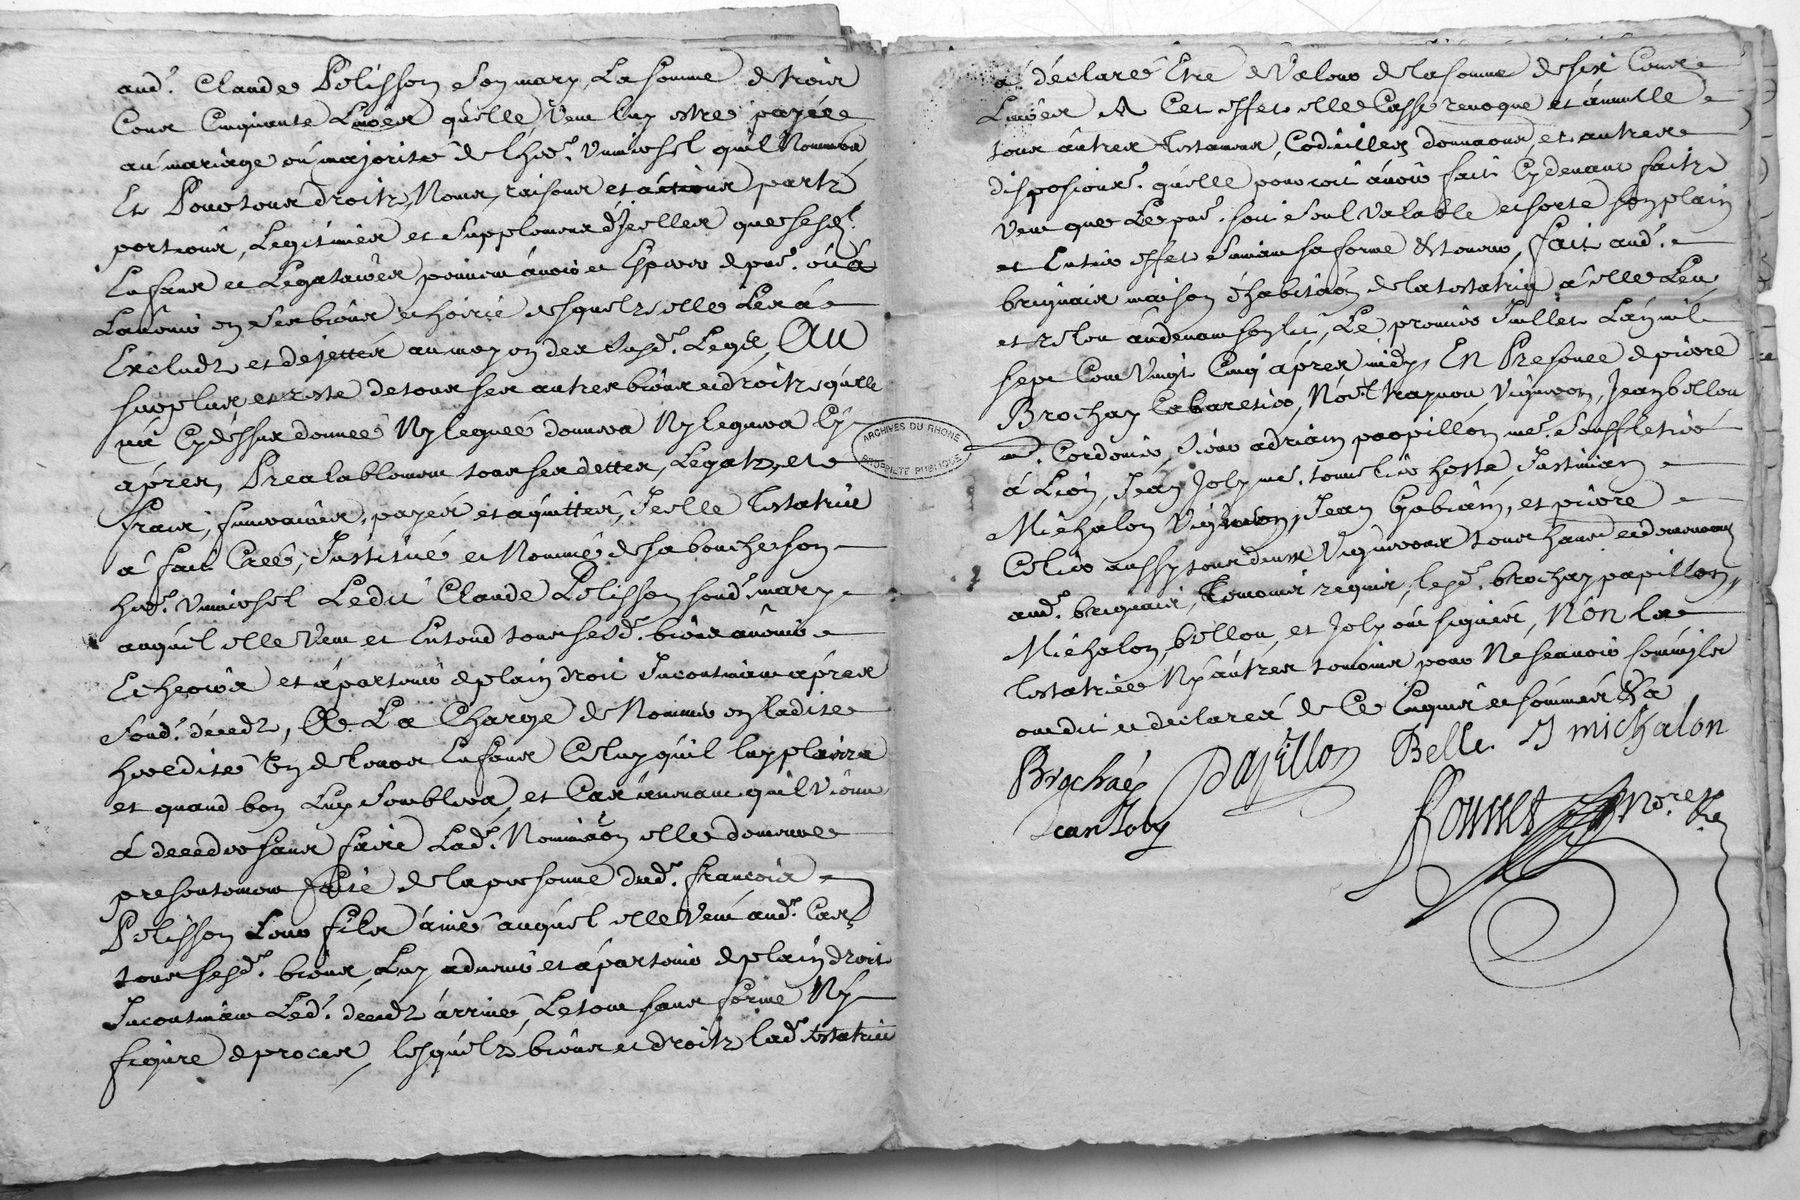 aud.t Claude Pelisson son mary, La somme de trois
Cens Cinquante Livres qu'elle Veut luy estre payée
au mariage ou majorité de lher.r Universel quil Nommera
Et Pour tous droitz, Noms, raisons et actions partz
portions, Legitimes et supplemens d'Jcelles que sesd.t
Enfans et Legataires peuvent avoir et Esperer de pnt. ou a
Lavenir en ses biens et hoirie desquelz elle Les a
Excludz et dejettes au moyen des susd.t Legs, Au
surplus et reste de tous ses autres biens et droitz qu'elle
n'a Cydessus donnée Ny leguée donnera Ny leguera Cy
apres, Prealablement tous ses dettes, Legatz, et
frais, funeraires, payes et aquittes, Jcelle Testatrice
a fait Creé, Jnstitué et Nommé de sa bouche son
her.r Universel Ledit Claude Pelisson sond.t mary
auquel elle Veut et Entend tous sesd.t biens avenir
Echeoir et apartenir de plain droit Jncontinant apres
sond.t decedz, A La Charge de Nommer en sadite
heredité Un de leurs Enfans Celuy qu'il luy plaira
et quand bon Luy semblera, et Cas avenant qu'il Vienne
a deceder sans faire Lad.t Nominaôn elle demeure
presentement faite de la personne dud.t francois
Pelisson Leur fils ainé auquel elle Veut aud.t Cas
tous sesd.t biens, Luy advenir et apartenir de plain droit
Jncontinant Led.t decedz arrivé, Le tout sans forme Ny
figure de proces, lesquelz biens et droitz lad.t testatrice
a declaré Etre de Valeur de la somme de six Cens
Livres A Cet effet elle Casse revoque et annulle
tous autres testamens, Codicilles donnaons, et autres
disposions. qu'elle pouvoit avoir fait Cydevant faitz
Veut que Le pnt. soit seul Valable et sorte son plain
et Entier effet suivant sa forme & teneur, fait aud.t
brignais maison d'habitaôn de la testatrix a elle Leu
et releu audevant son lit, Le premier Juillet Lan mil
sept Cent Vingt Cinq apres midy, En Presence de pierre
Brochay Cabaretier, Noel tragnou, Vigneron, Jean bellou
m.e Cordonier, sieur adrian papillon me. soufletier
a Lion, Jean Joly me. tonnelier hoste, Justinian
Michalon Vigneron, Jean Gabian, et pierre
Celier aussy tous deux Vignerons tous hans et demeurans
aud.t brignais, Temoins requis, lesd.t brochay papillon,
Michalon, bellou, et Joly ont signer, Non la
testatrice Ny autres temoins pour Ne scavoir comm'ils
ont dit et declaré de Ce Enquis et sommés & a
Brochaé Papillon Belle. J michalon
Jean Joly Rousset no.re
ARCHIVES DU RHONE
PROPRIETE PUBLIQUE